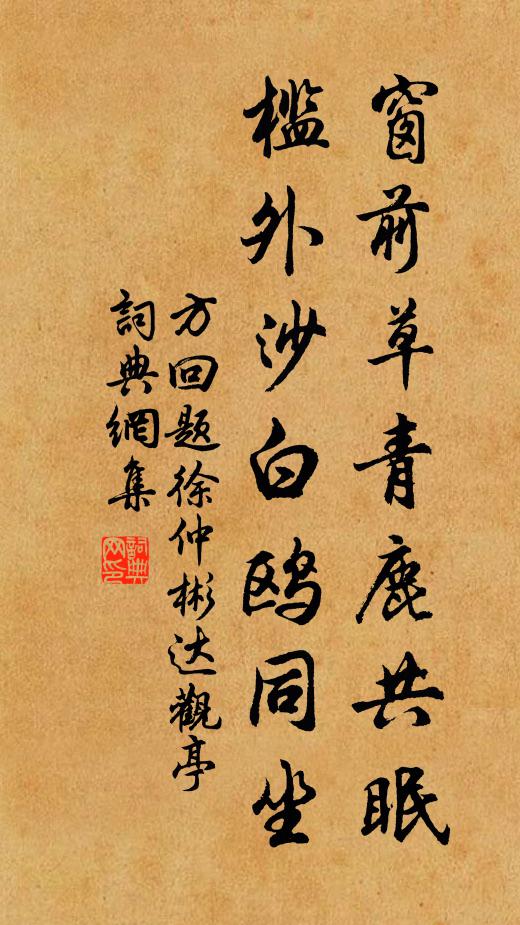 窗前草青鹿共眠
槛外沙白鸥同坐
方回题徐仲彬达觀亭
詞典網集
詞典网印